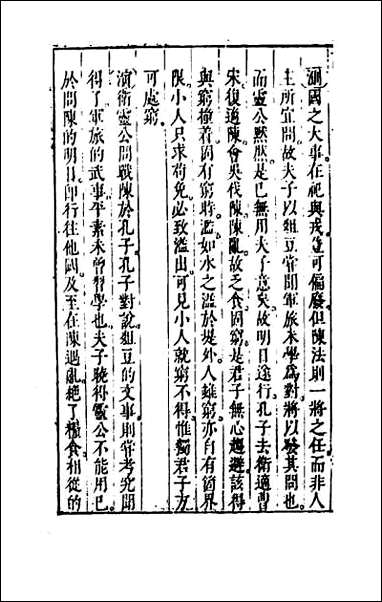 測國之大事在祀與戎豈可偏廢但陳法則一將之任而非人
主所宜問故夫子以俎豆嘗聞軍旅未學為對將以發其問也
而靈公黙然是已無用夫子意矣故明日遂行孔子去衛適曹
宋復適陳會吳伐陳陳亂故乏食固窮是君子無心趨避該得
與窮撞着固有窮時濫如水之濫於堤外人雖窮亦自有箇界
限小人只求苟免必致濫出可見小人就窮不得惟獨君子方
可處窮
演衛靈公問戰陳於孔子孔子對說俎豆的文事則嘗考究聞
得了軍旅的武事平素未曾習學也夫子曉得靈公不能用已
於問陳的明日即行往他國及至在陳遇亂絶了糧食相從的